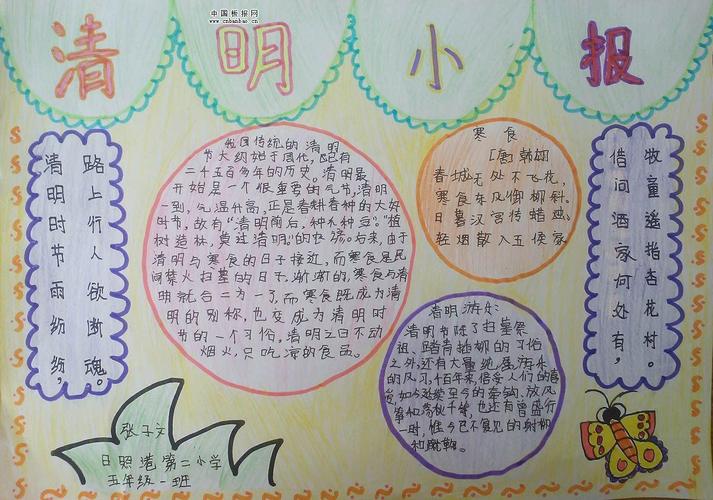 中国板报网
www.cnbanbao.cn
清明小报
清明时节雨纷纷，
路上行人欲断魂。
我国传统的清明
节大约始于周代，已有
二千五百多年的历史。清明最
开始是一个很重要的节气，清明
一到，气温升高，正是春耕春种的大好
时节，故有“清明前后，种瓜种豆”。“植
树造林，莫过清明。”的农谚。后来，由于
清明与寒食的日子接近，而寒食是民
间禁火扫墓的日子，渐渐的，寒食与清
明就合二为一了，而寒食既成为清
明的别称，也变成为清明时
节的一个习俗，清明之日不动
烟火，只吃凉的食品。
寒食
[唐]韩翃
春城无处不飞花，
寒食东风御柳斜。
日暮汉宫传蜡烛，
轻烟散入五侯家
借问酒家何处有，
牧童遥指杏花村。
清明
清明节除了扫墓祭
祖、踏青插柳的习俗
之外，还有大量
的风习，千百年来，倍受人们的喜
爱，如今延续至今的牵钩、放风
筝和荡秋千等，也还有曾盛行
一时，惟今已不复见的射柳
和蹴鞠。
张子文
日照港第二小学
五年级一班